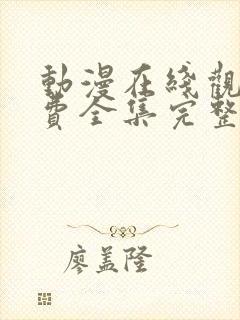 動漫在綫觀
費全集完整
廖盖隆